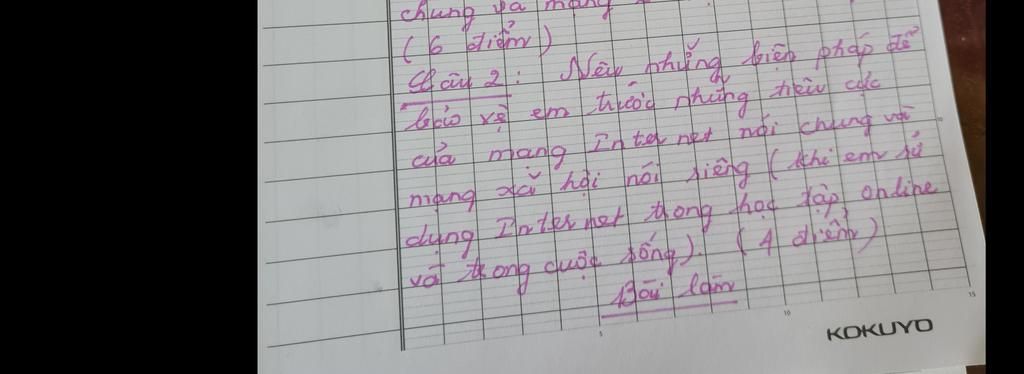 chung và mạng
(6 điểm)
Câu 2: Nêu những biện pháp để
bảo vệ em trước những tiêu cực
của mạng Internet nói chung và
mạng xã hội nói riêng (khi em sử
dụng Internet trong học tập online
và trong cuộc sống). (4 điểm)
Bài làm
5
10
15
KOKUYO